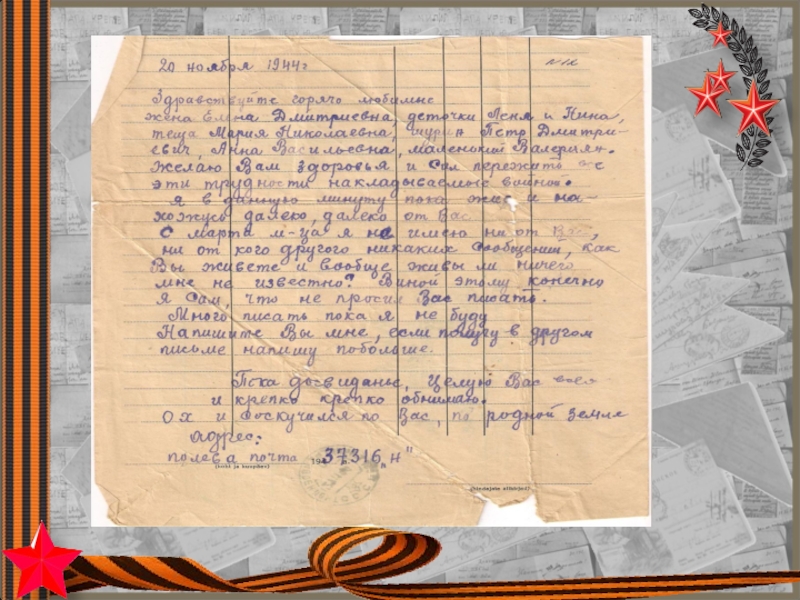 20 ноября 1944 г
N IX
Здравствуйте горячо любимые
жена Елена Дмитриевна, деточки Леня и Нина,
теща Мария Николаевна, шурин Петр Дмитри-
евич, Анна Васильевна, маленький Валериян.
Желаю Вам здоровья и Сил пережить все
эти трудности накладываемые войной.
я в данную минуту пока жив и на-
хожусь далеко, далеко от Вас
С марта м-ца я не имею ни от Вас,
ни от кого другого никаких сообщений, как
Вы живете и вообще живы ли ничего
мне не известно? Виной этому конечно
я Сам, что не просил Вас писать.
Много писать пока я не буду
Напишите Вы мне, если получу в другом
письме напишу побольше.
Пока досвиданье, Целую Вас всех
и крепко крепко обнимаю.
Ох и соскучился по Вас, по родной земле
Адрес:
полева почта 37316 „Н"
(koht ja kuupäev)
(hindajate allkirjad)